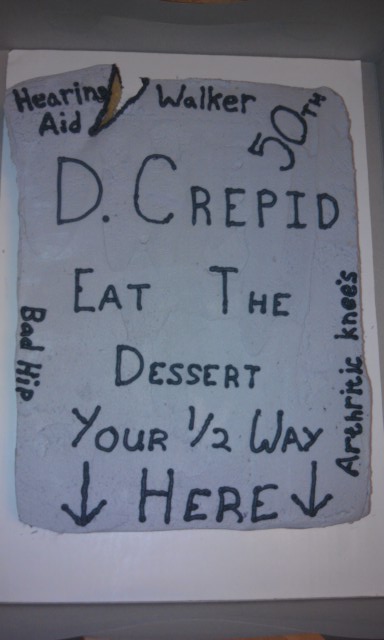 Hearing Aid
Walker
50TH
D. CREPID
EAT THE
DESSERT
YOUR 1/2 WAY
↓ HERE ↓
Bad Hip
Arthritic knee's